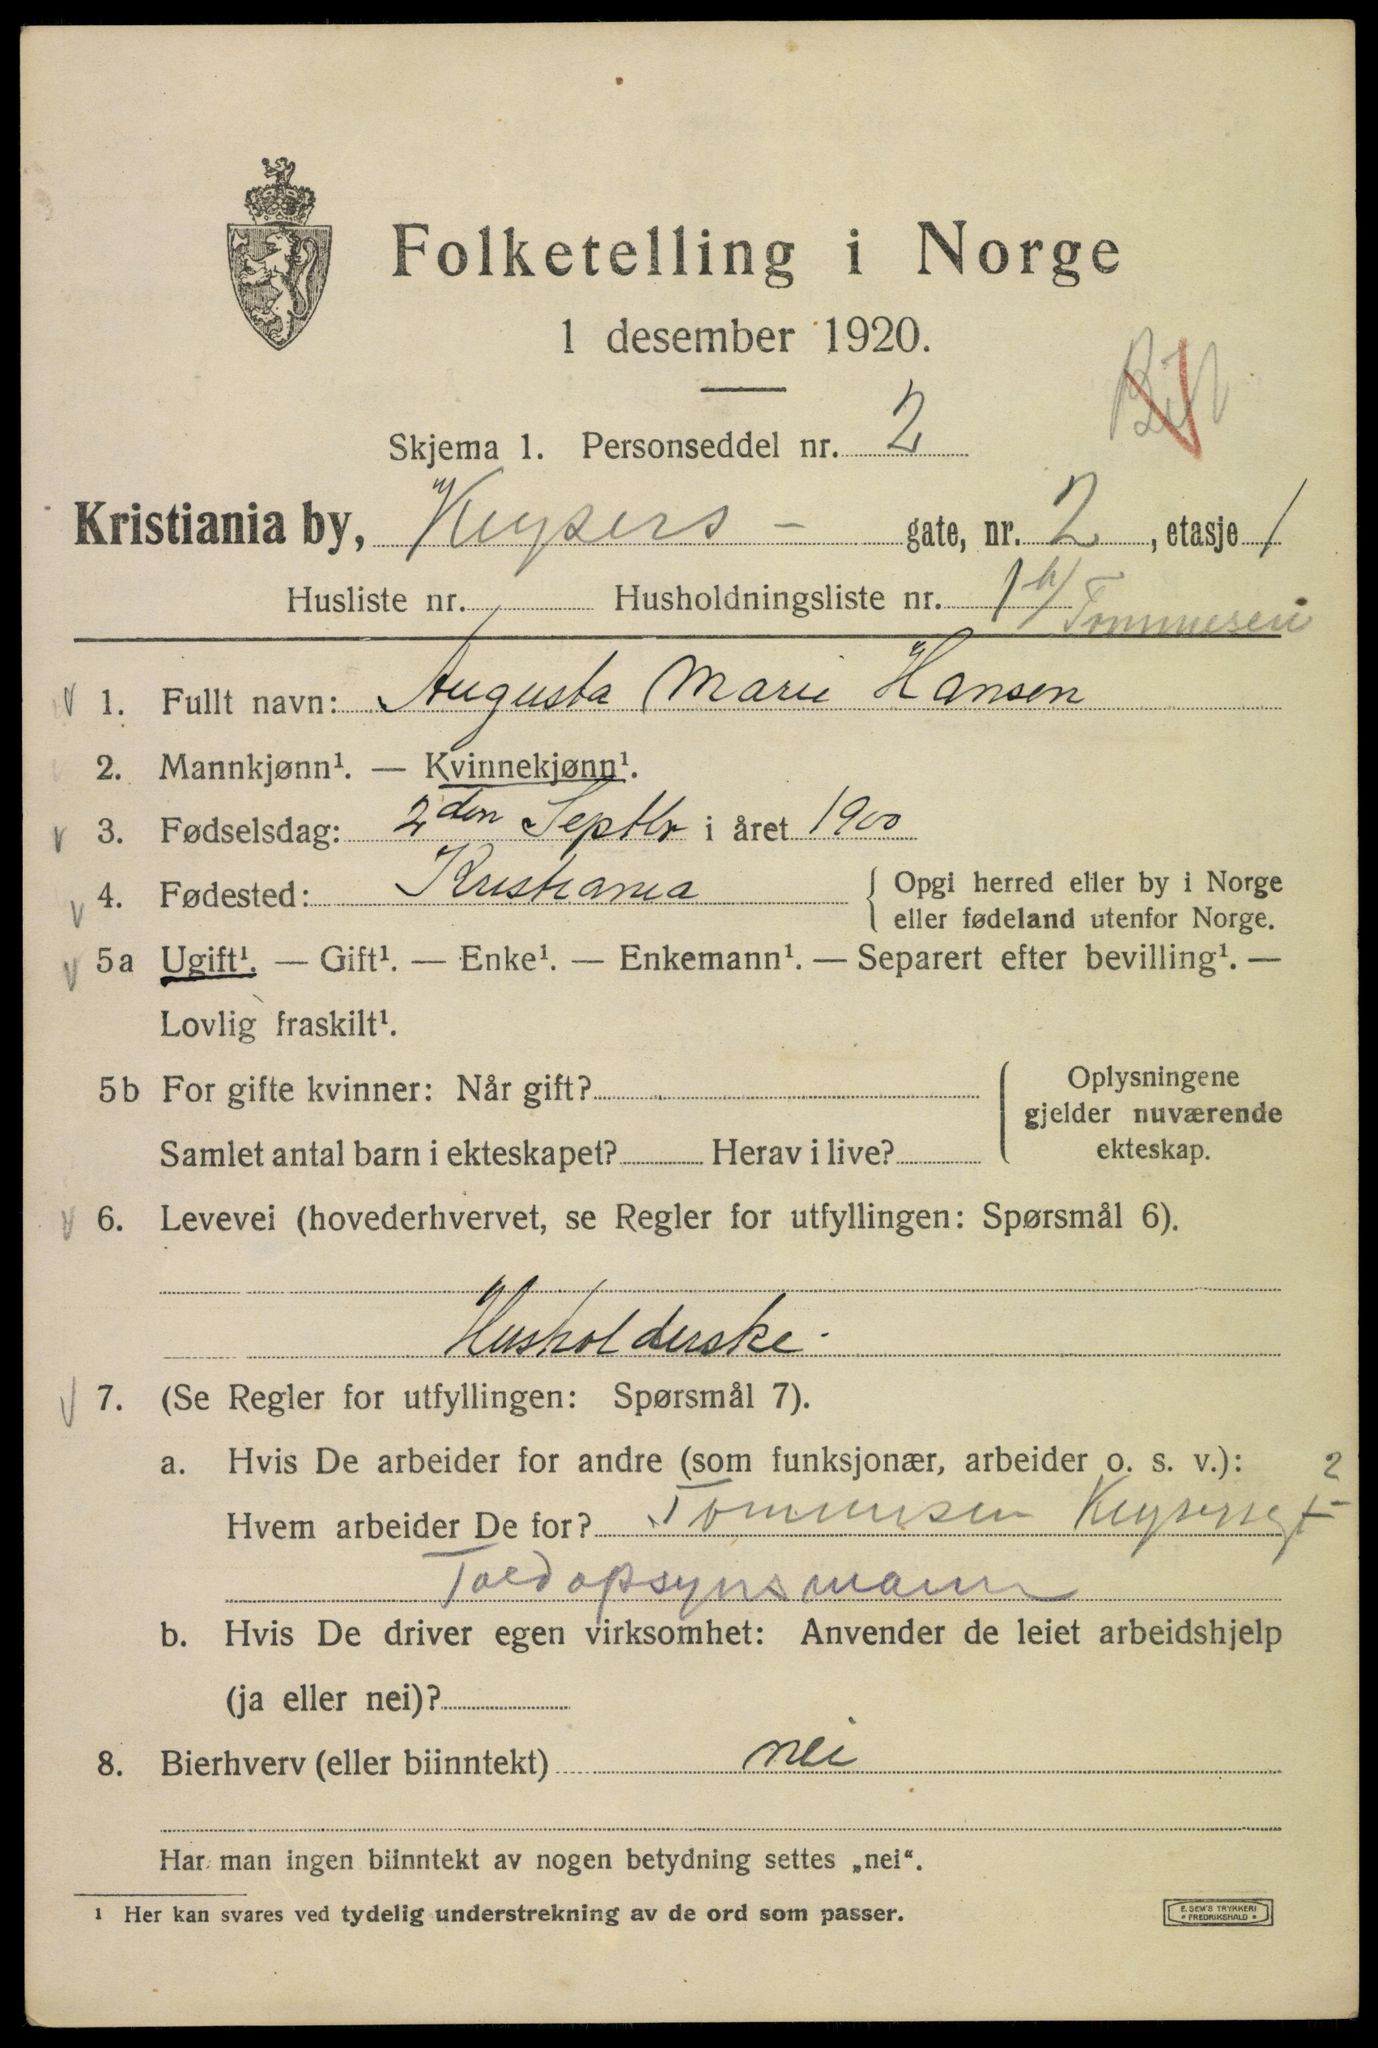 Folketelling i Norge
1 desember 1920.
Skjema 1. Personseddel nr. 2
Kristiania by, Keysers - gate, nr. 2, etasje 1
Husliste nr. Husholdningsliste nr. 1 b/ Tommesen
1. Fullt navn: Augusta Marie Hansen
2. Mannkjønn¹. — Kvinnekjønn¹.
3. Fødselsdag: 2den Septbr i året 1900
4. Fødested: Kristiania { Opgi herred eller by i Norge
eller fødeland utenfor Norge.
5a Ugift¹. — Gift¹. — Enke¹. — Enkemann¹. — Separert efter bevilling¹. —
Lovlig fraskilt¹.
5b For gifte kvinner: Når gift?
Samlet antal barn i ekteskapet? Herav i live?
Oplysningene
gjelder nuværende
ekteskap.
6. Levevei (hovederhvervet, se Regler for utfyllingen: Spørsmål 6).
Husholderske.
7. (Se Regler for utfyllingen: Spørsmål 7).
a. Hvis De arbeider for andre (som funksjonær, arbeider o. s. v.): 2
Hvem arbeider De for? Tommesen Keysersgt
Toldopsynsmann
b. Hvis De driver egen virksomhet: Anvender de leiet arbeidshjelp
(ja eller nei)?
8. Bierhverv (eller biinntekt) nei
Har man ingen biinntekt av nogen betydning settes „nei“.
1 Her kan svares ved tydelig understrekning av de ord som passer.
E. SEM'S TRYKKERI
FREDRIKSHALD